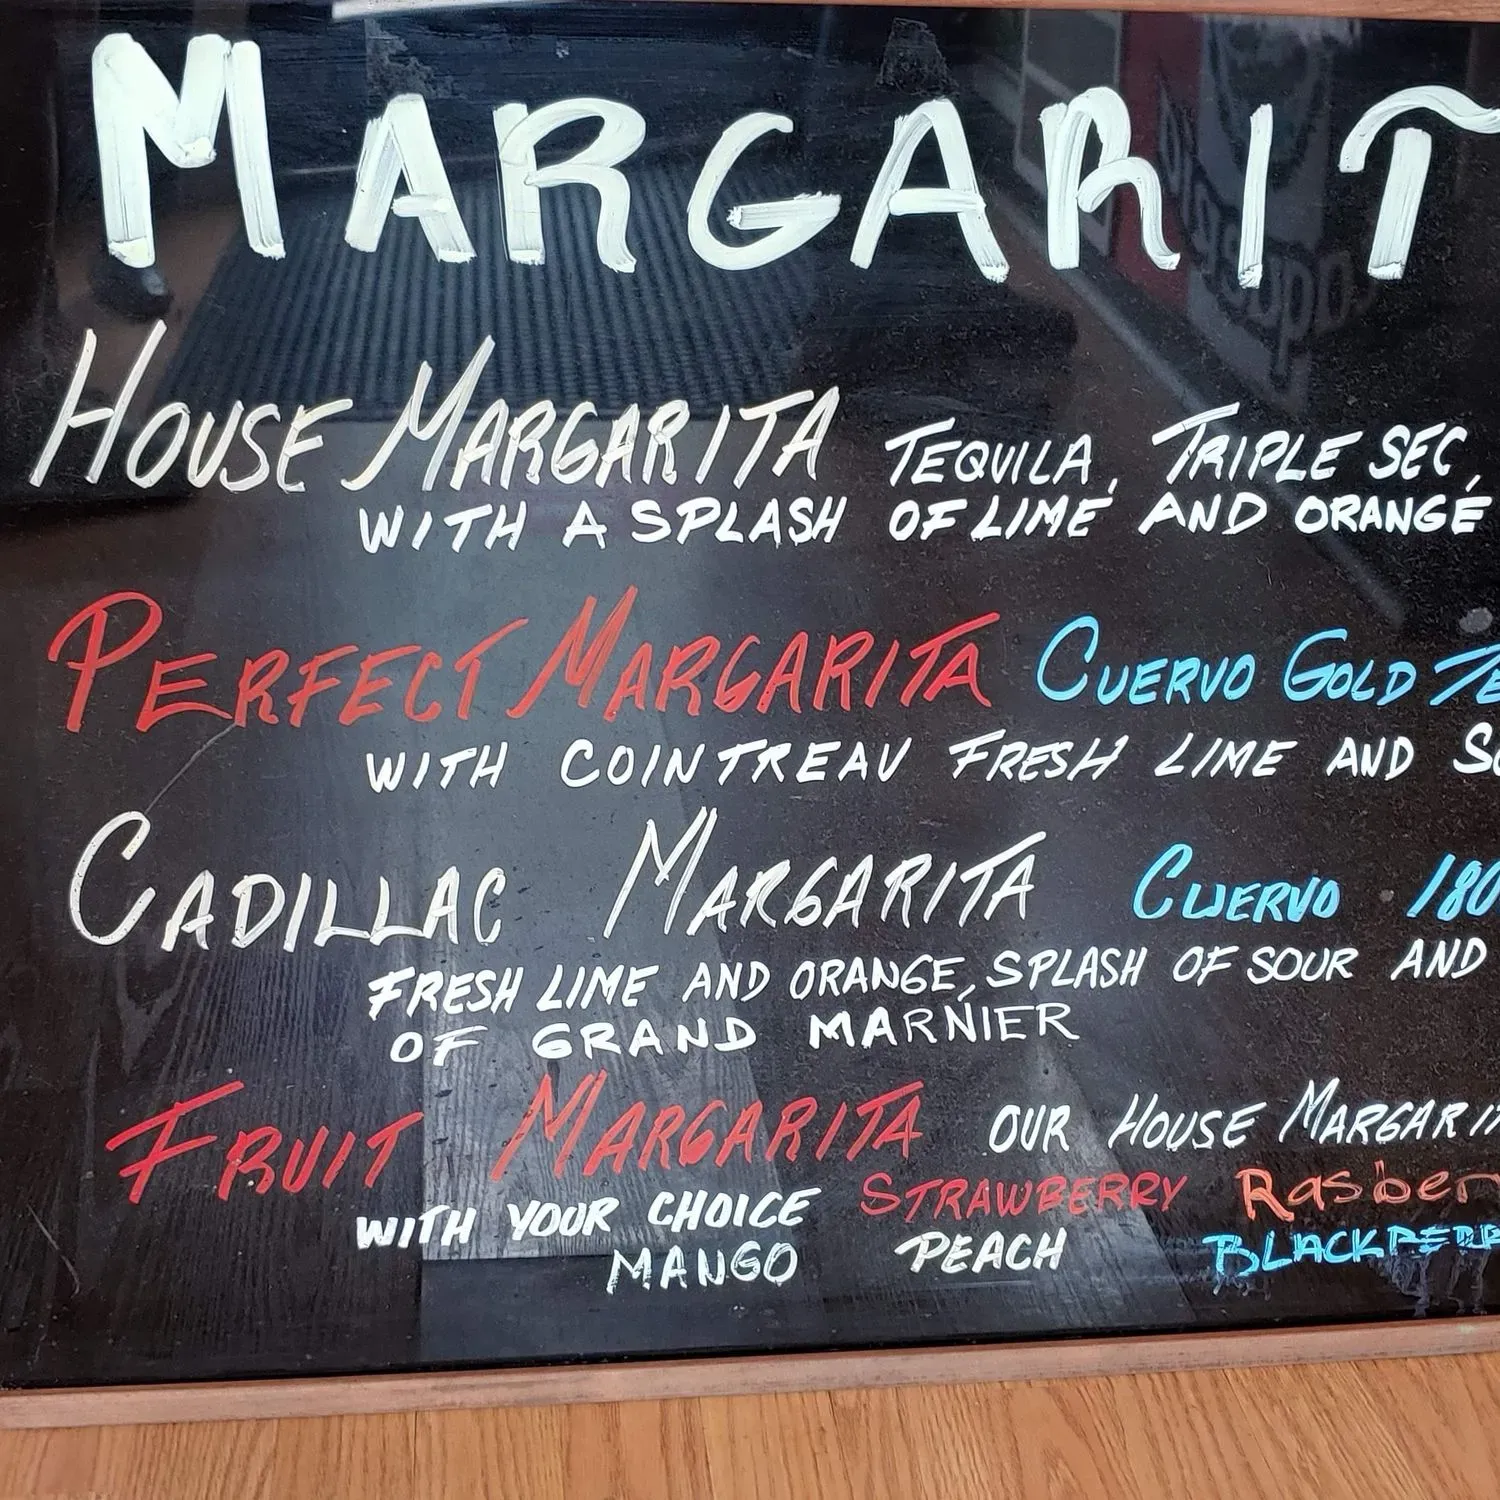 MARGARIT
HOUSE MARGARITA TEQUILA, TRIPLE SEC,
WITH A SPLASH OF LIME AND ORANGE
PERFECT MARGARITA CUERVO GOLD TE
WITH COINTREAU FRESH LIME AND SO
CADILLAC MARGARITA CUERVO 180
FRESH LIME AND ORANGE, SPLASH OF SOUR AND
OF GRAND MARNIER
FRUIT MARGARITA OUR HOUSE MARGARIT
WITH YOUR CHOICE STRAWBERRY Rasber
MANGO PEACH BLACKBERR